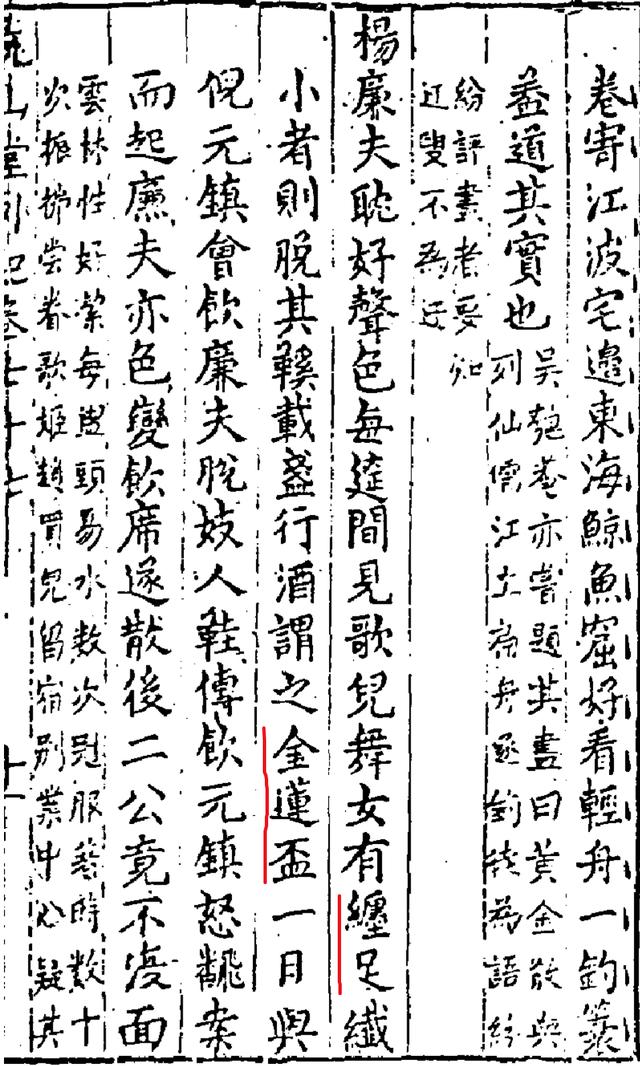 卷寄江波宅邊東海鯨魚窟好看輕舟一釣
葢道其實也
吳匏菴亦嘗題其畫曰黃金散與
列仙儒江上
舟逐釣
為語紛
紛評畫者要知
迂叟不為迂
楊廉夫耽好聲色每筵間見歌兒舞女有纏足纖
小者則脫其鞵載盞行酒謂之金蓮盃一日與
倪元鎮會飲廉夫脫妓人鞋傳飲元鎮怒翻案
而起廉夫亦色變飲席遂散後二公竟不復面
雲林性好潔每盥頭易水數次冠服著時數十
次振拂嘗眷歌姬趙買兒留宿別業中心疑其
堯山堂外紀卷七十七